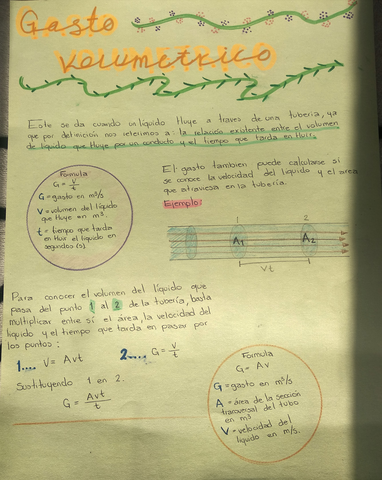 Gasto
VOLUMETRICO
Este se da cuando un líquido fluye a través de una tubería, ya
que por definición nos referimos a: la relación existente entre el volumen
de líquido que fluye por un conducto y el tiempo que tarda en fluir.
Fórmula
G = V/t
G = gasto en m³/s
V = volumen del líquido
que fluye en m³.
t = tiempo que tarda
en fluir el líquido en
segundos (s)
El gasto también puede calcularse si
se conoce la velocidad del líquido y el área
que atraviesa en la tubería.
Ejemplo:
1 2
A₁ A₂
Vt
Para conocer el volumen del líquido que
pasa del punto 1 al 2 de la tubería, basta
multiplicar entre sí el área, la velocidad del
líquido y el tiempo que tarda en pasar por
los puntos:
1.... V = Avt 2.... G = V/t
Sustituyendo 1 en 2.
G = Avt/t
Fórmula
G = Av
G = gasto en m³/s
A = área de la sección
transversal del tubo
en m³
V = velocidad del
líquido en m/s.